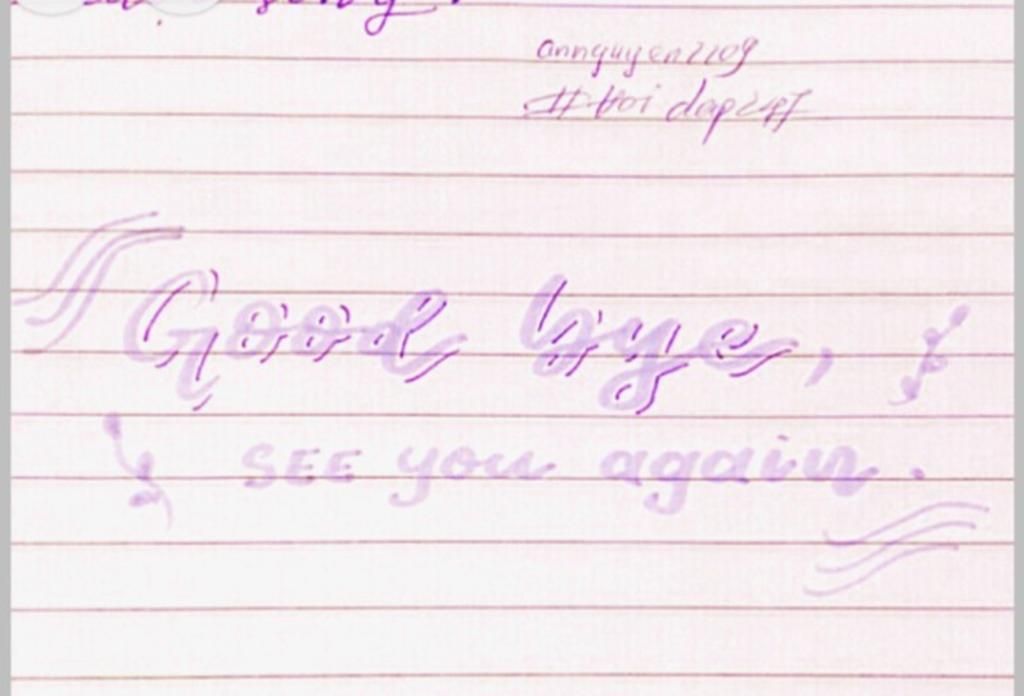 annguyen2209
#Hoi dap247
Good bye,
SEE you again.